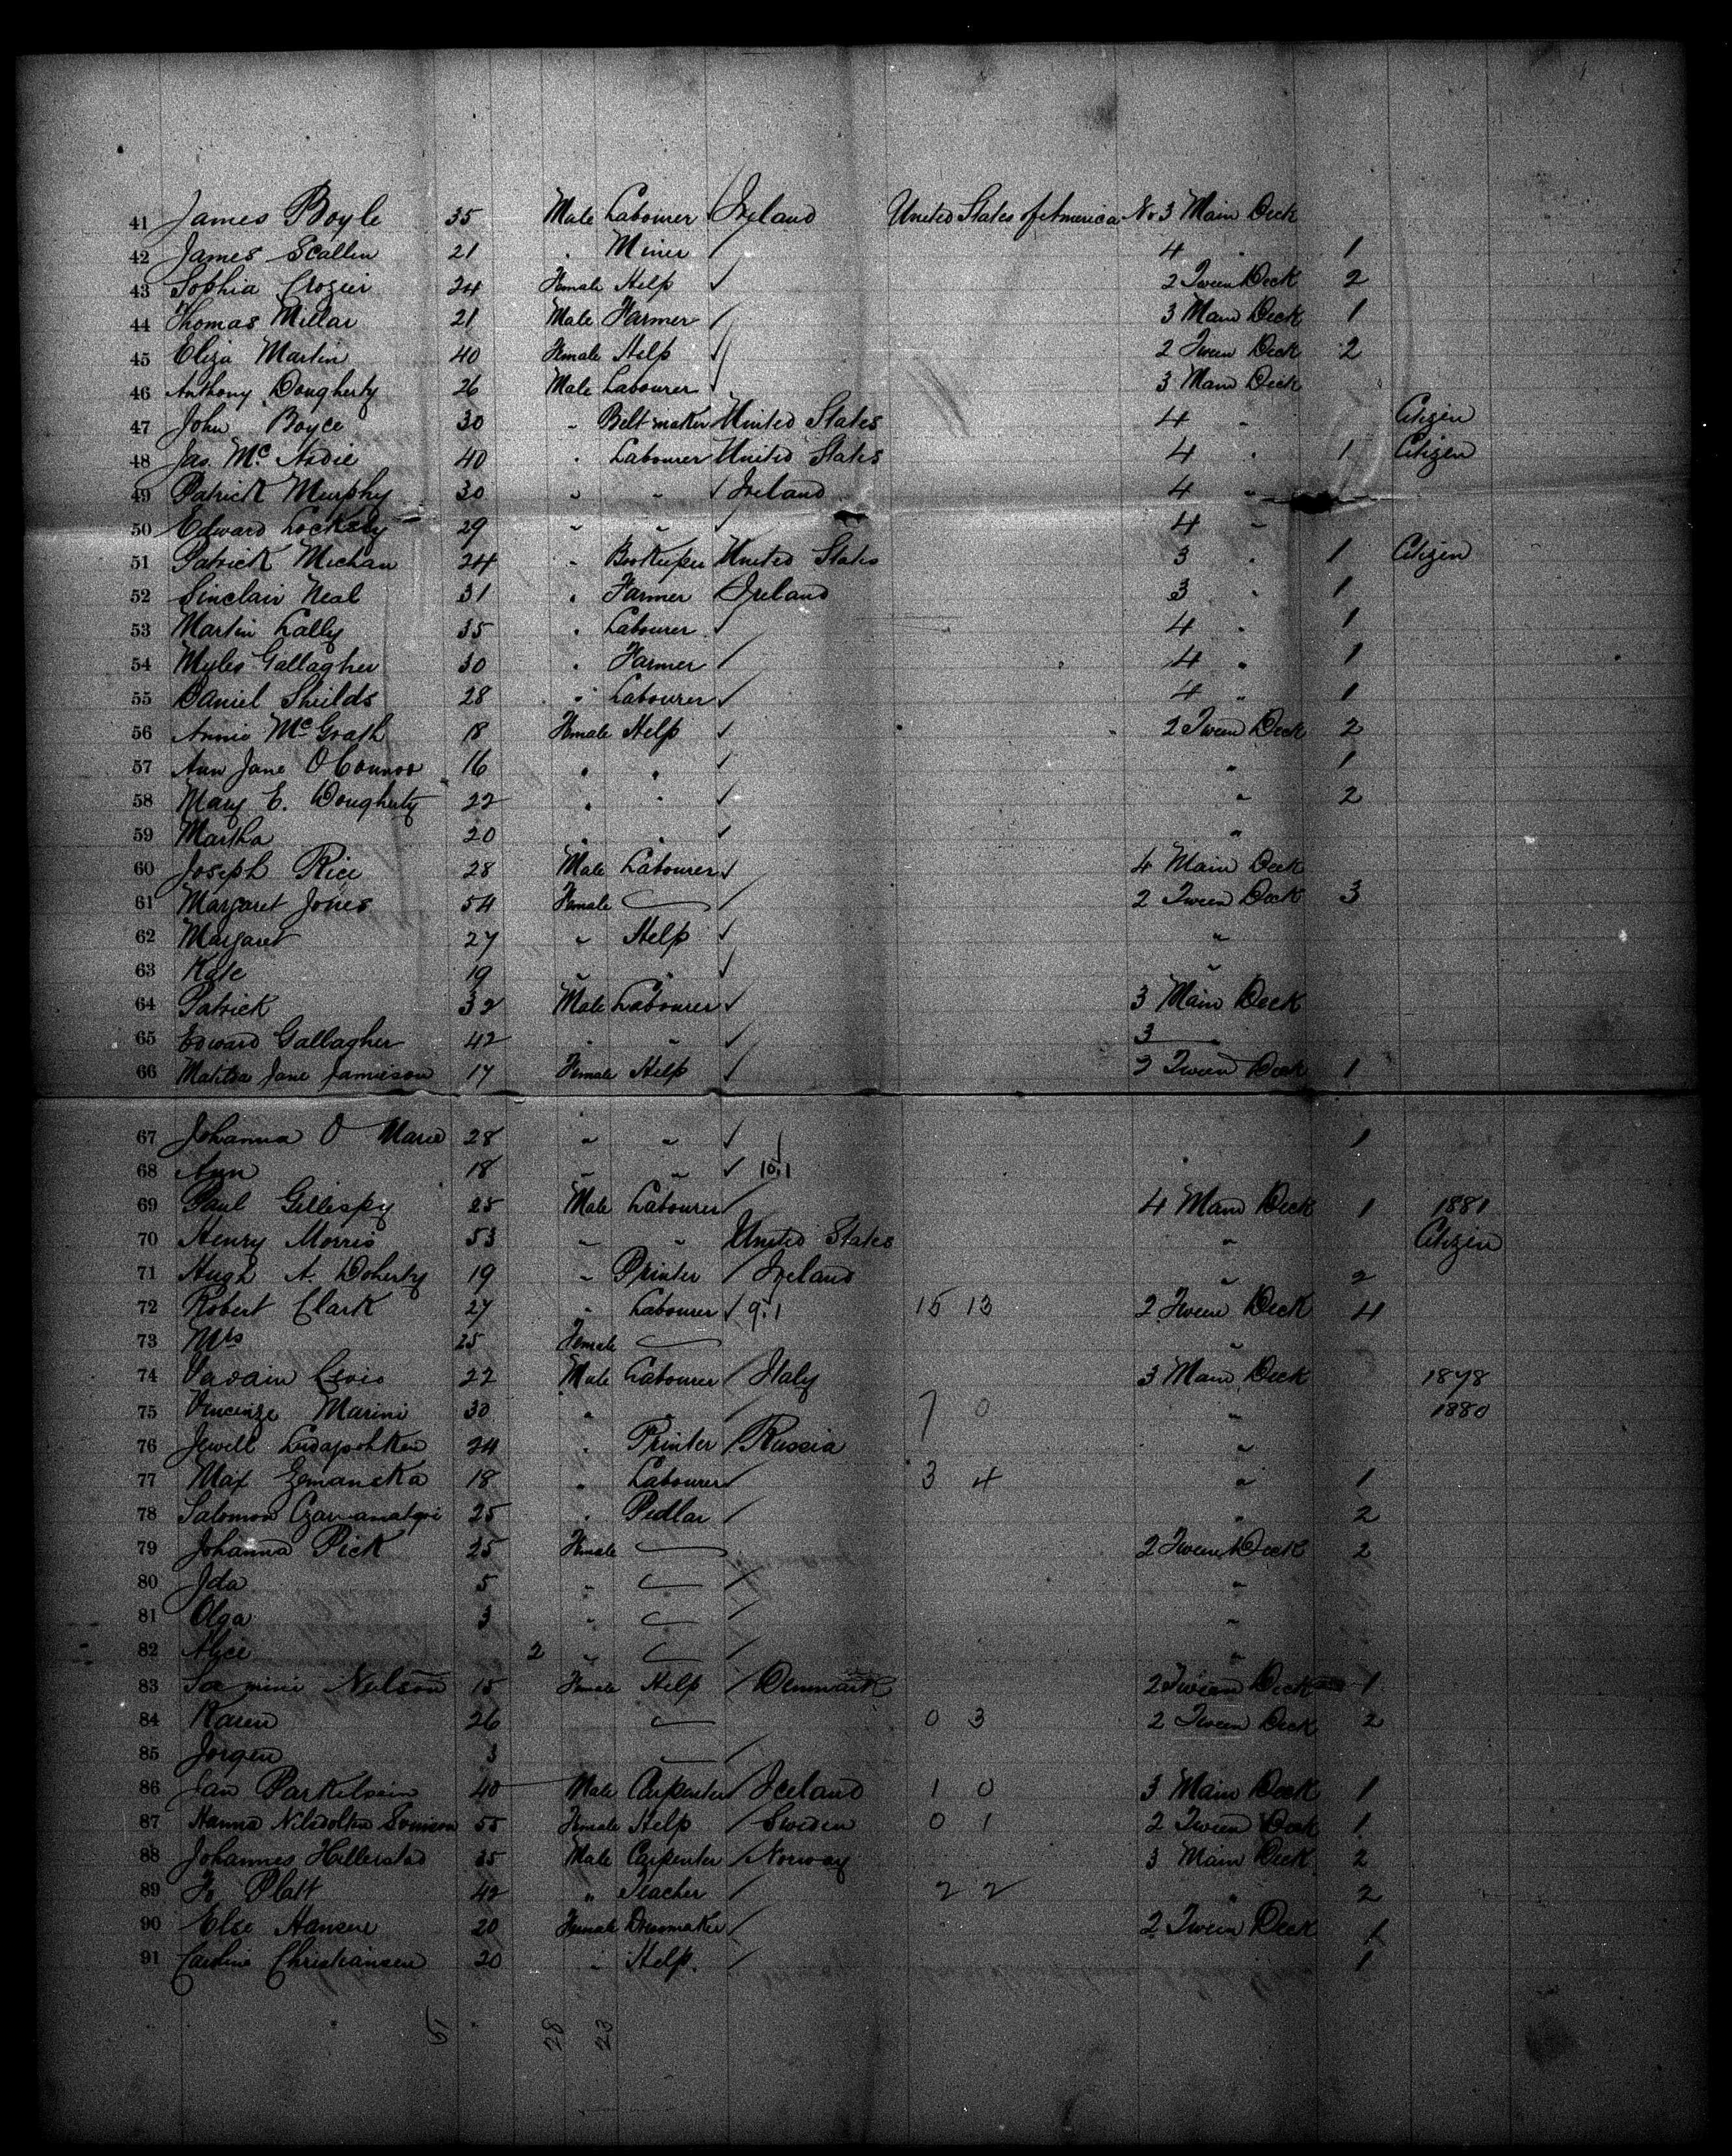 41 James Boyle 35 Male Labourer / Ireland United States of America No 3 Main Deck
42 James Scallin 21 " Miner / 4 " 1
43 Sophia Crozier 24 Female Help ✓ 2 Tween Deck 2
44 Thomas Millar 21 Male Farmer / 3 Main Deck 1
45 Eliza Martin 40 Female Help ✓ 2 Tween Deck 2
46 Anthony Dougherty 26 Male Labourer ✓ 3 Main Deck
47 John Boyce 30 " Belt maker United States 4 " Citizen
48 Jas. Mc Ardie 40 " Labourer United States 4 " 1 Citizen
49 Patrick Murphy 30 " " ✓ Ireland 4 "
50 Edward Locksly 29 " " ✓ 4 "
51 Patrick Michan 24 " Bookeeper United States 3 " 1 Citizen
52 Sinclair Neal 31 " Farmer / Ireland 3 " 1
53 Martin Lally 35 " Labourer ✓ 4 " 1
54 Myles Gallagher 30 " Farmer / 4 " 1
55 Daniel Shields 28 " Labourer ✓ 4 " 1
56 Annie McGrath 18 Female Help ✓ 2 Tween Deck 2
57 Ann Jane O'Connor 16 " " ✓ " 1
58 Mary E. Dougherty 22 " " ✓ " 2
59 Martha 20 " " ✓ "
60 Joseph Rice 28 Male Labourer ✓ 4 Main Deck
61 Margaret Jones 54 Female / 2 Tween Deck 3
62 Margaret 27 " Help ✓ "
63 Kate 19 " " ✓ "
64 Patrick 32 Male Labourer ✓ 3 Main Deck
65 Edward Gallagher 42 " " ✓ 3
66 Matilda Jane Jamieson 17 Female Help / 2 Tween Deck 1
67 Johanna O Mara 28 " " ✓ 1
68 Ann 18 " " ✓ 10.1
69 Paul Gillespy 25 Male Labourer / 4 Main Deck 1 1881
70 Henry Morris 53 " " United States " Citizen
71 Hugh A. Doherty 19 " Printer / Ireland " 2
72 Robert Clark 27 " Labourer ✓ 9.1 15 13 2 Tween Deck 4
73 Mrs 25 Female "
74 22 Male Labourer / Italy 3 Main Deck 1878
75 Vincenze Marini 30 " " / 7 0 " 1880
76 Jewell 24 " Printer / Russia "
77 Max Zemanska 18 " Labourer / 3 4 " 1
78 Salomon 25 " Pedlar / " 2
79 Johanna Pick 25 Female 2 Tween Deck 2
80 Ida 5 " / "
81 Olga 3 " / "
82 Alice 2 " / "
83 Nelson 15 Female Help / Denmark 2 Tween Deck 1
84 Karen 26 0 3 2 Tween Deck 2
85 Jorgen 3 /
86 Jan Parkelsein 40 Male Carpenter / Iceland 1 0 3 Main Deck 1
87 Hanna 55 Female Help / Sweden 0 1 2 Tween Deck 1
88 Johannes Hillerstad 35 Male Carpenter / Norway 3 Main Deck 2
89 Platt 42 " Teacher / 2 2 " 2
90 Else Hansen 20 Female Dressmaker / 2 Tween Deck 1
91 Caroline Christiansen 20 " Help. / 1
51 28 23